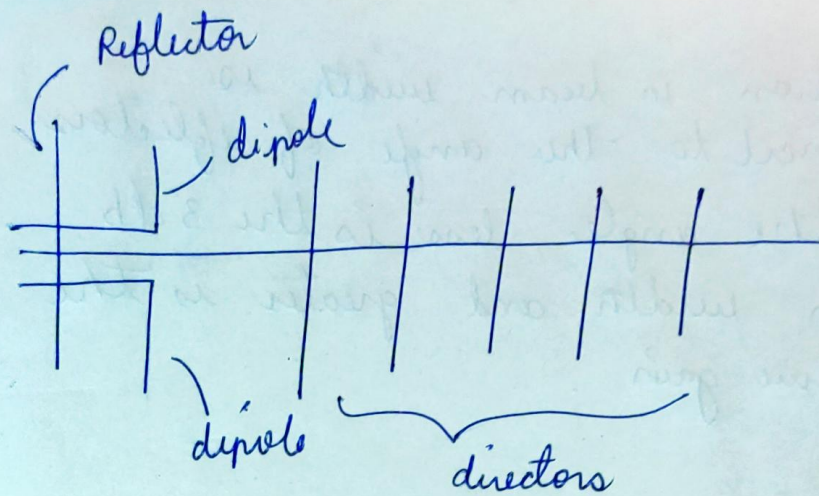 Reflector
dipole
dipole
directors